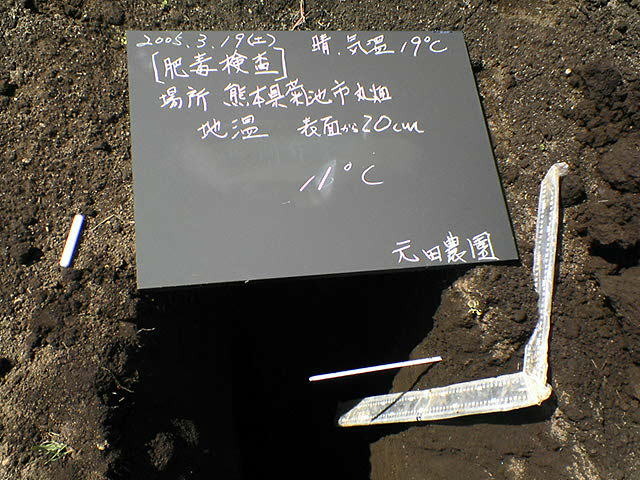 2005.3.19(土) 晴.気温19℃
[肥毒検査]
場所 熊本県菊池市丸畑
地温 表面から20cm
11℃
元田農園